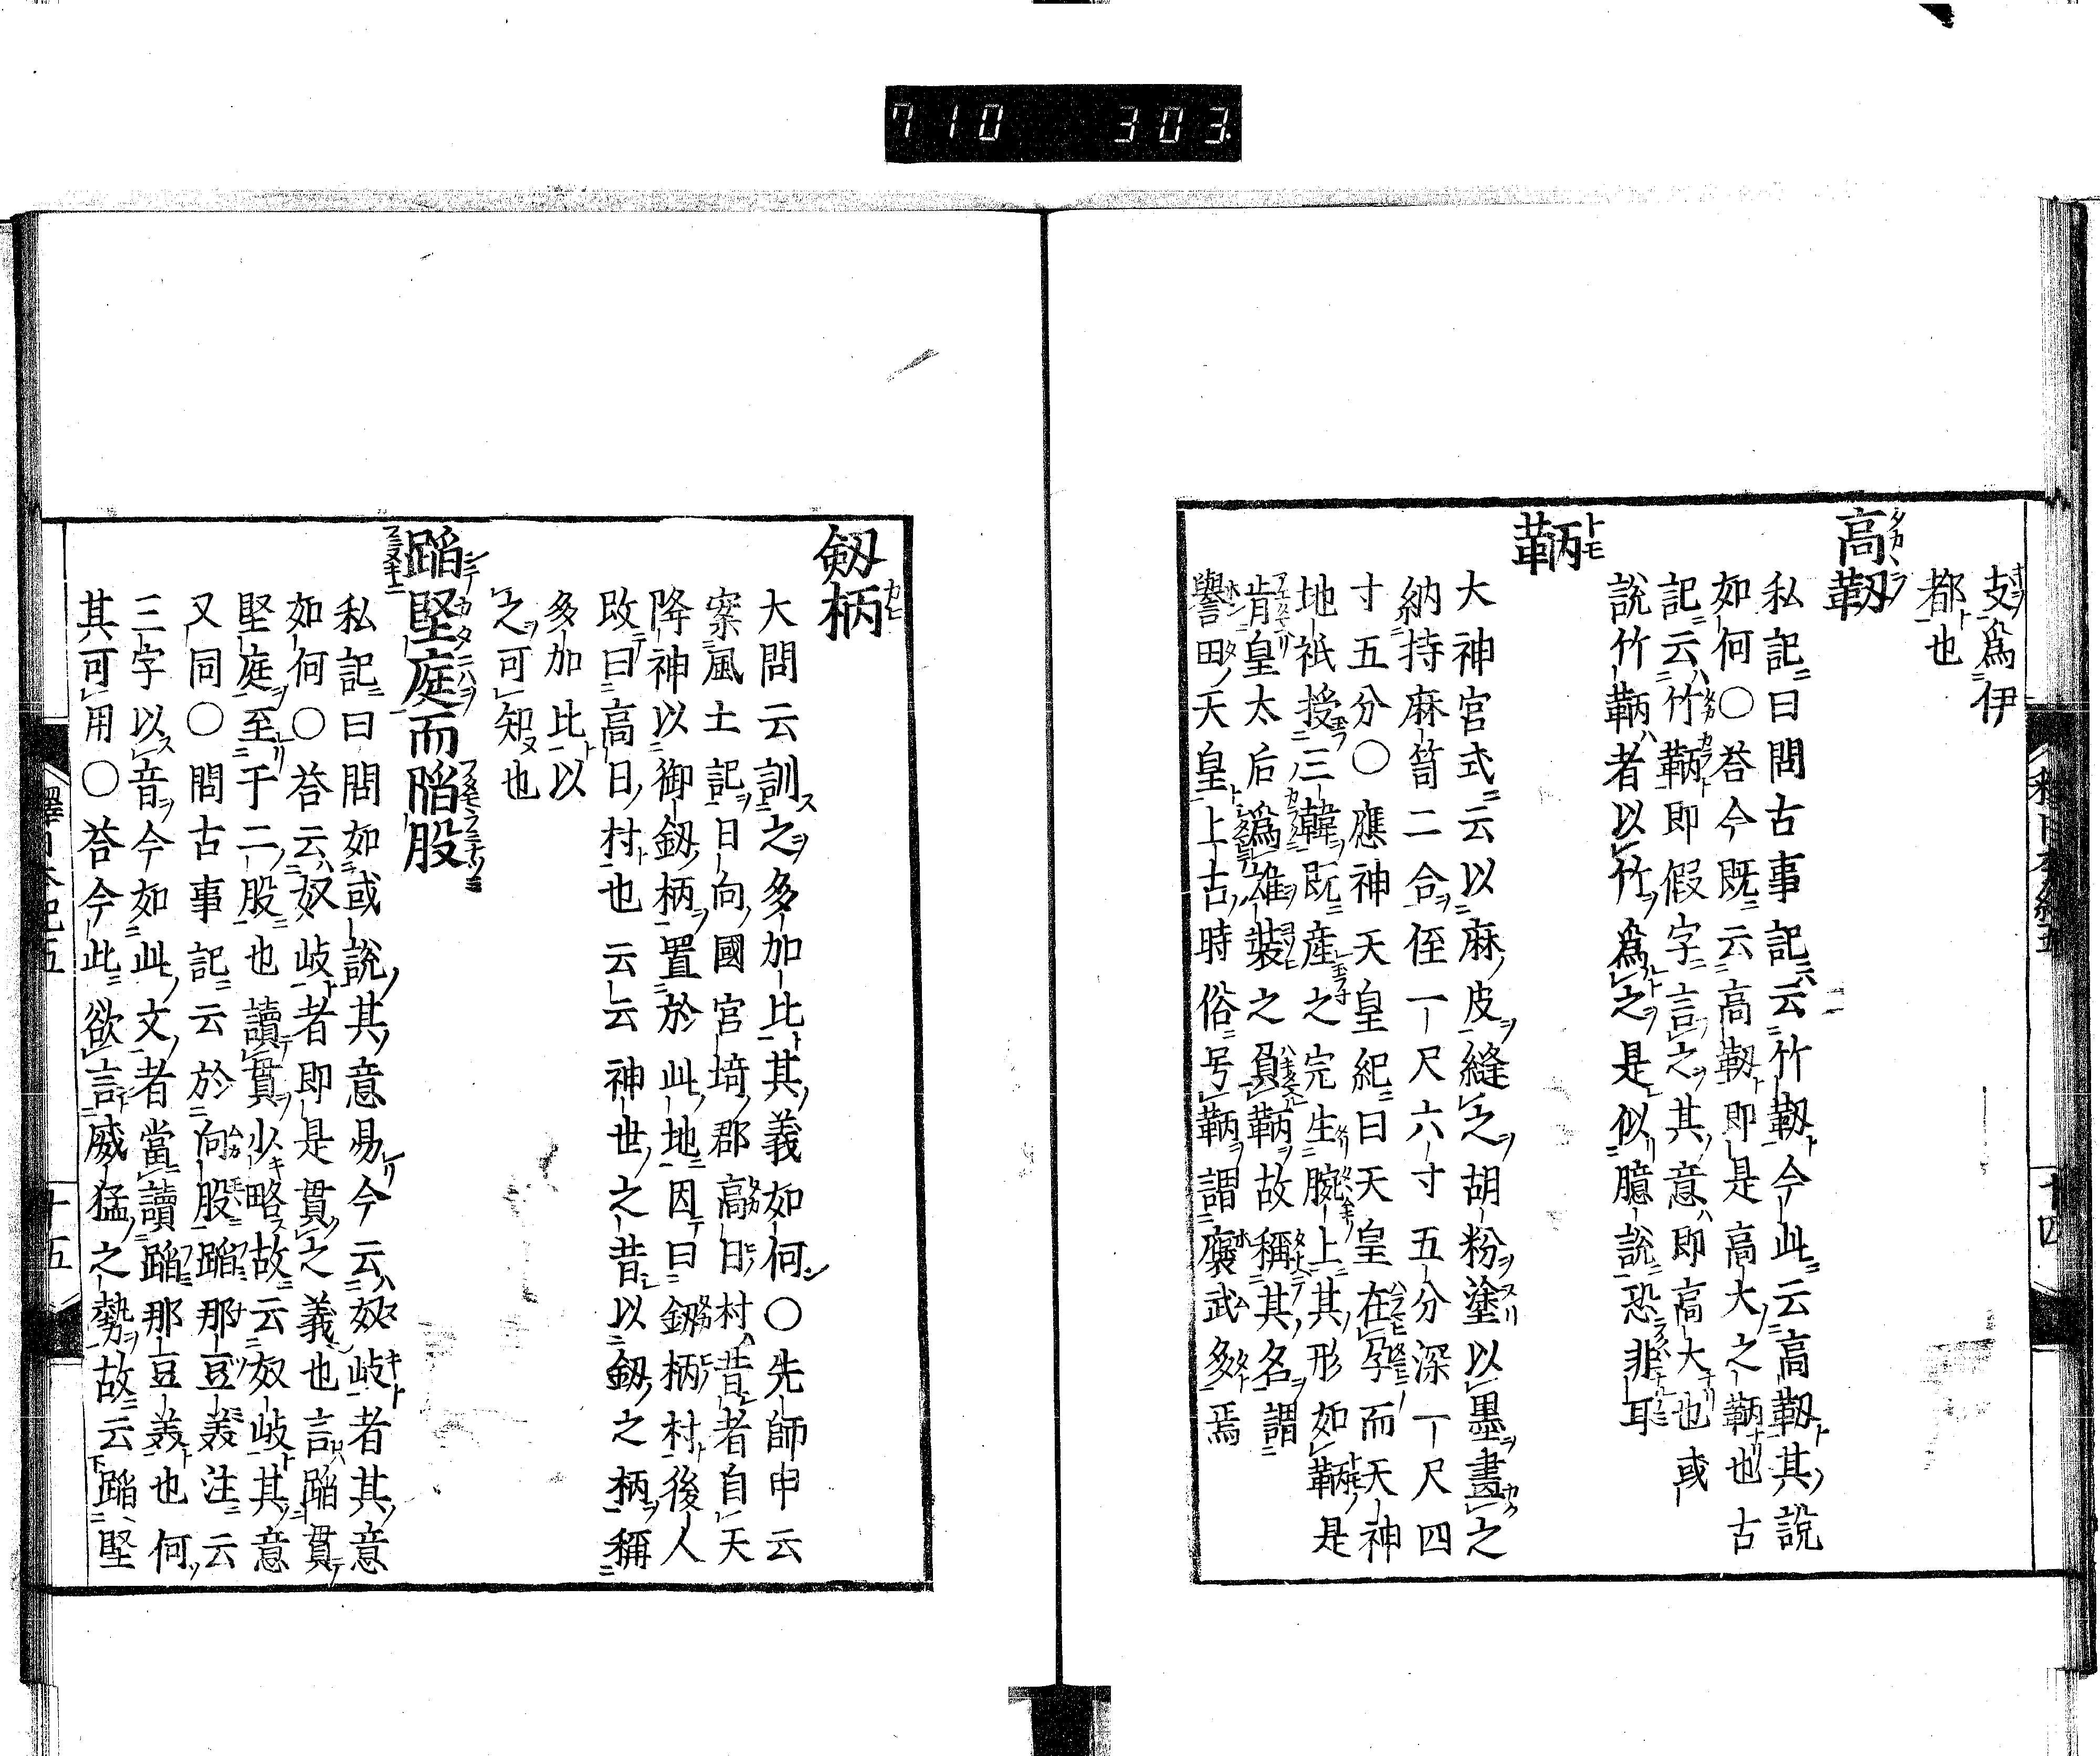 710 303
支爲伊
都也
高靱
私記曰問古事記云竹靱今此云高靱其說
如何〇荅今既云高靱即是高大之鞆也古
記云竹鞆即假字言之其意即高大也或
說竹鞆者以竹爲之是似臆說恐非耳
鞆
大神宮式云以麻皮縫之胡粉塗以墨畫之
納持麻笥二合侄一尺六寸五分深一尺四
寸五分〇應神天皇紀曰天皇在孕而天神
地祇授三韓既產之完生腕上其形如鞆是
肯皇太后爲雄裝之負鞆故稱其名謂
譽田天皇上古時俗号鞆謂褒武多焉
十四
劔柄
大問云訓之多加比其義如何〇先師申云
案風土記曰向國宮埼郡高日村昔者自天
降神以御劔柄置於此地因曰劔柄村後人
改曰高日村也云云神世之昔以劔之柄稱
多加比以
之可知也
蹈堅庭而陷股
私記曰問如或說其意易今云奴岐者其意
如何〇荅云奴岐者即是貫之義也言蹈貫
堅庭至于二股也讀貫少略故云奴岐其意
又同〇問古事記云於向股蹈那豆美注云
三字以音今如此文者當讀蹈那豆美也何
其可用〇荅今此欲言威猛之勢故云蹈堅
釋日本紀五
十五